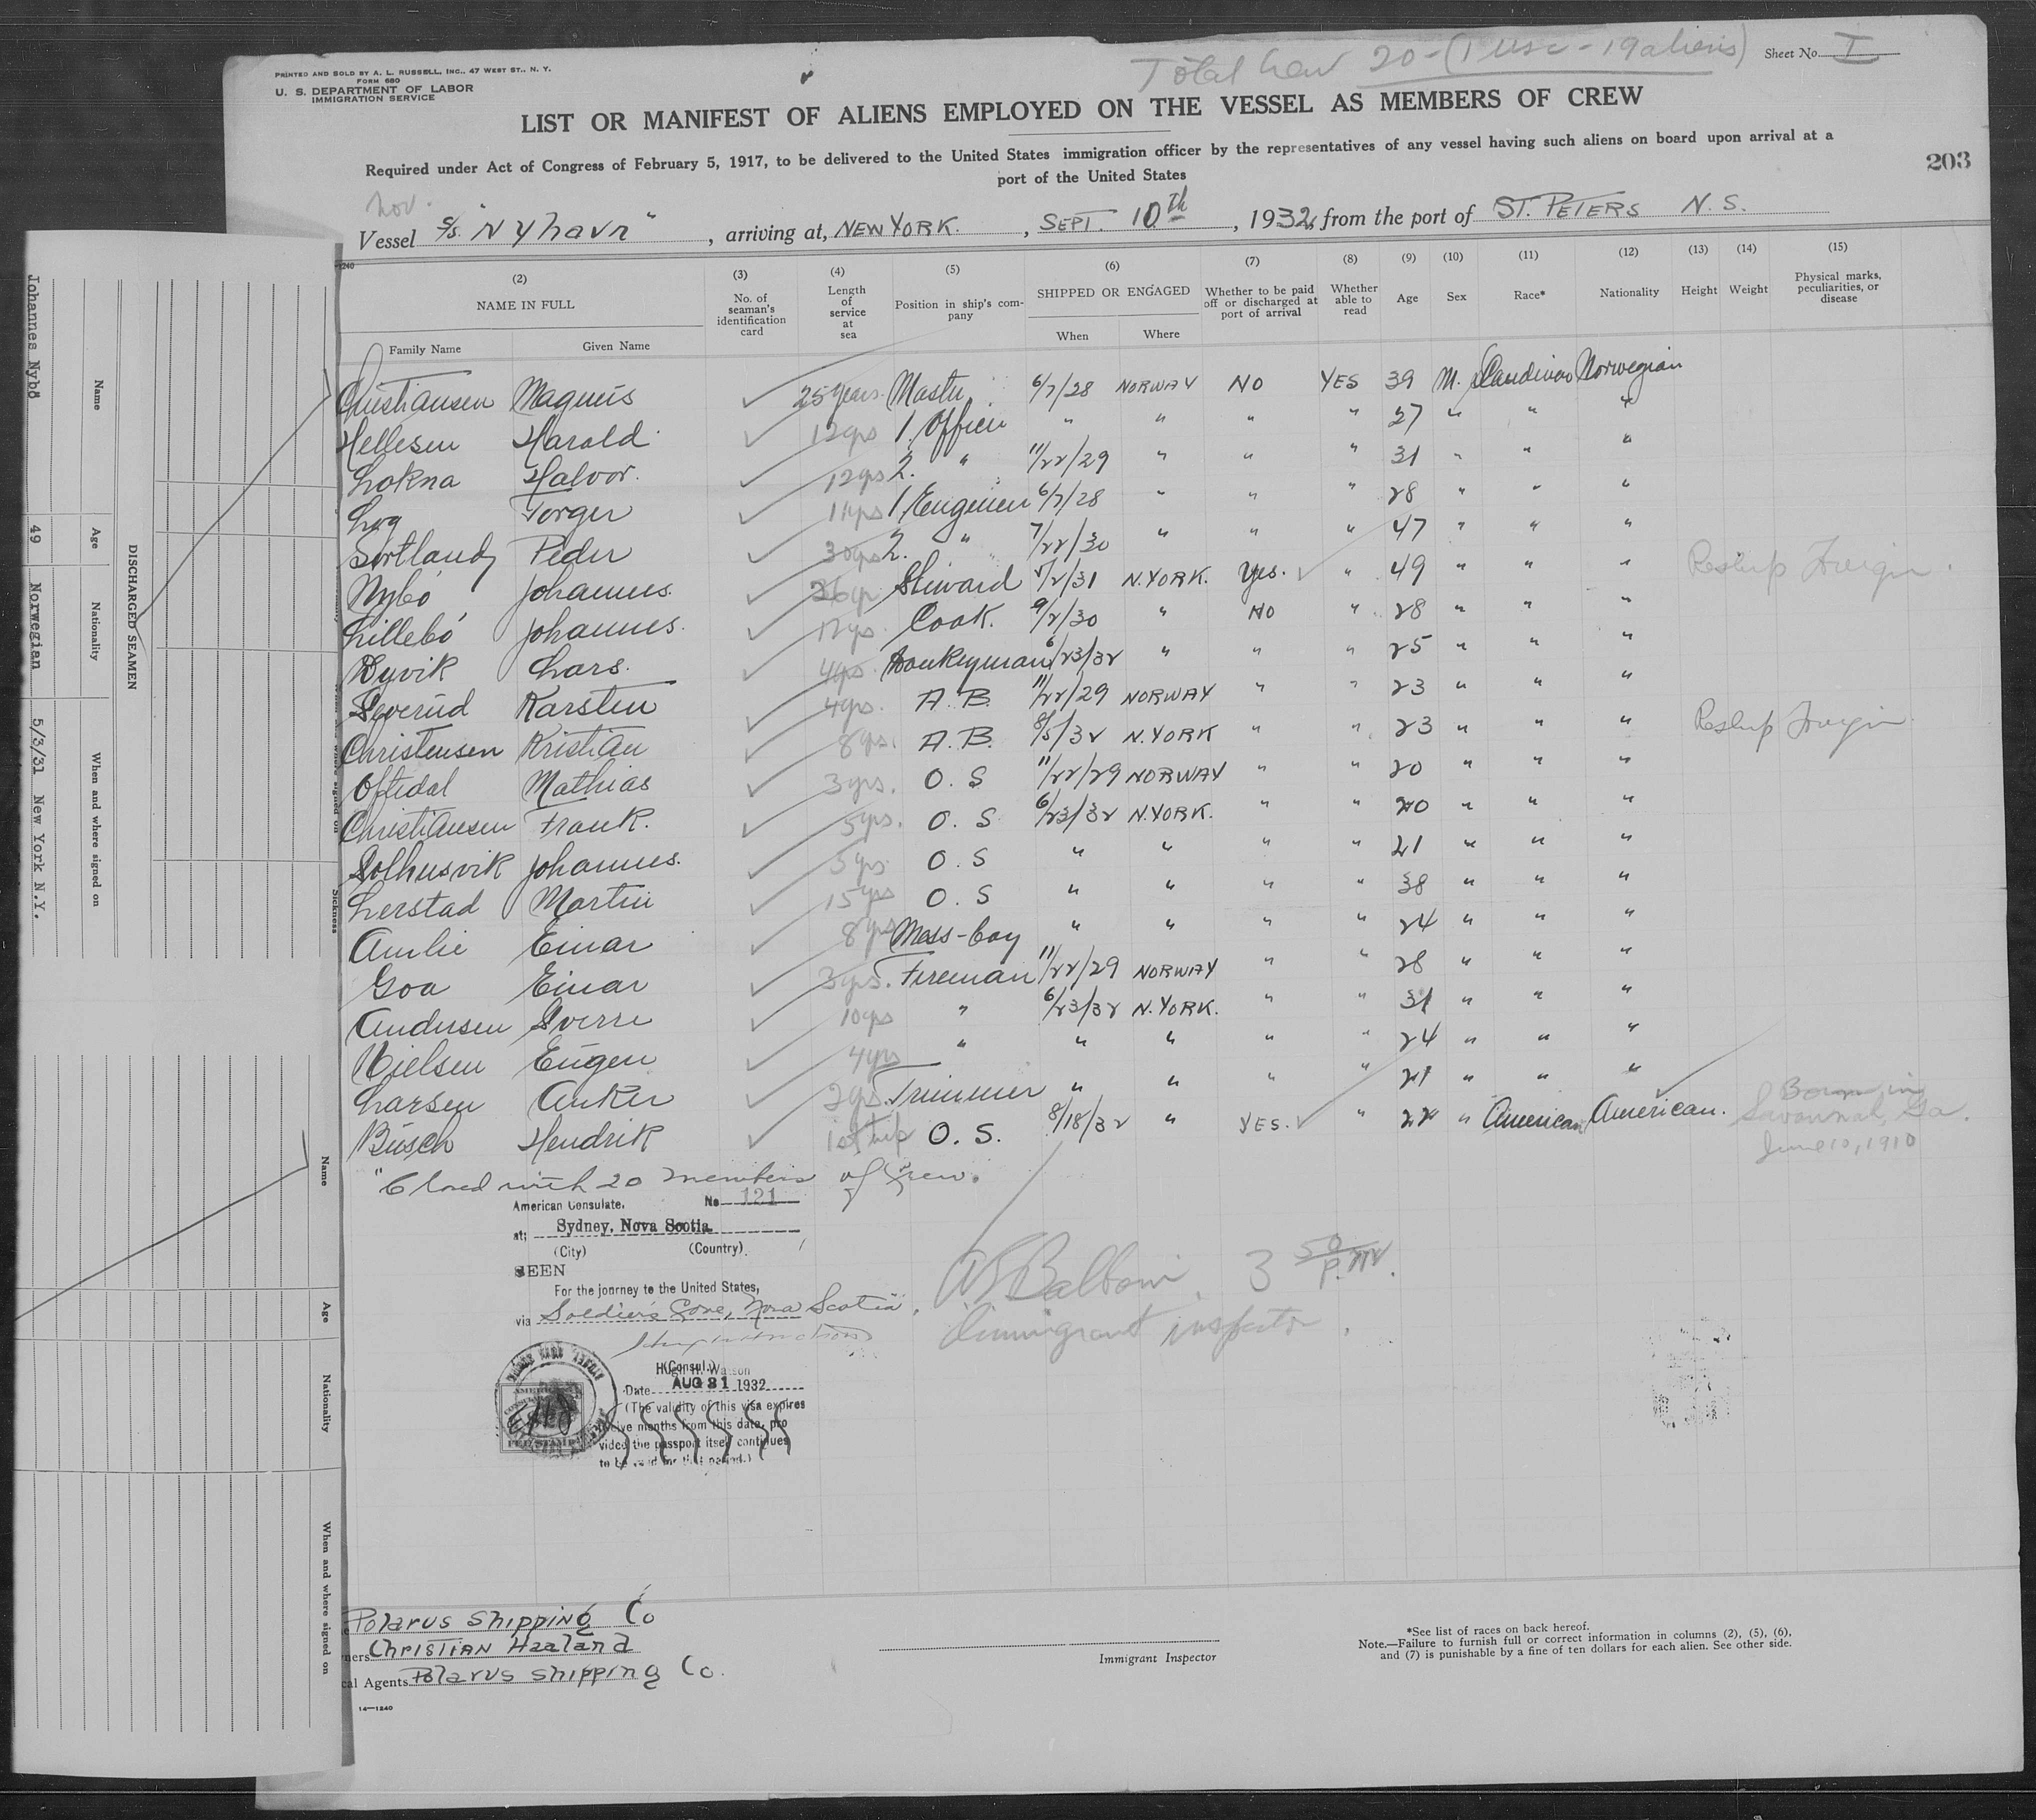 Total Crew 20-(1 USC - 19 aliens)
Sheet No. I
PRINTED AND SOLD BY A. L. RUSSELL, INC., 47 WEST ST., N. Y.
FORM 680
U. S. DEPARTMENT OF LABOR
IMMIGRATION SERVICE
LIST OR MANIFEST OF ALIENS EMPLOYED ON THE VESSEL AS MEMBERS OF CREW
Required under Act of Congress of February 5, 1917, to be delivered to the United States immigration officer by the representatives of any vessel having such aliens on board upon arrival at a
port of the United States
203
Nov.
Vessel S/S. "Nyhavn", arriving at, NEW YORK., SEPT. 10th, 1932, from the port of ST. PETERS N. S.
(2) (3) (4) (5) (6) (7) (8) (9) (10) (11) (12) (13) (14) (15)
NAME IN FULL No. of seaman's identification card Length of service at sea Position in ship's company SHIPPED OR ENGAGED Whether to be paid off or discharged at port of arrival Whether able to read Age Sex Race* Nationality Height Weight Physical marks, peculiarities, or disease
Family Name Given Name When Where
Christiansen Magnus 25 years. Master 6/7/28 NORWAY NO YES 39 M. Scandinav Norwegian
Hellesen Harald 12 yrs 1. Officer " " " " 27 " " "
Lokna Halvor. 12 yrs 2. " 11/22/29 " " " 31 " " "
Log Torger 11 yrs 1. Engineer 6/7/28 " " " 28 " " "
Sørtland Peder 30 yrs 2. " 7/22/30 " " " 47 " " "
Nybó Johannes. Steward N.YORK. Yes. " 49 " " " Reship Foreign.
Lillebó Johannes. Cook. 9/2/30 " NO " 28 " " "
Lars. 4 yrs. Donkeyman 6/23/32 " " " 25 " " "
Severud Karsten 4 yrs. A. B. 11/22/29 NORWAY " " 23 " " "
Christensen Kristian 8 yrs. A. B. 8/5/32 N.YORK " " 23 " " " Reship Foreign
Oftedal Mathias 3 yrs. O. S 11/22/29 NORWAY " " 20 " " "
Christiansen Frank. 5 yrs. O. S 6/23/32 N.YORK. " " 20 " " "
Solhusvik Johannes. 5 yrs. O. S " " " " 21 " " "
Lerstad Martin 15 yrs O. S " " " " 38 " " "
Amlie Einar 8 yrs Mess-boy " " " " 24 " " "
Goa Einar 3 yrs. Fireman 11/22/29 NORWAY " " 28 " " "
Andersen Sverre 10 yrs " 6/23/32 N.YORK. " " 31 " " "
Nielsen Eugen 4 yrs " " " " " 24 " " "
Larsen Anker 2 yrs. Trimmer " " " " 21 " " "
Busch Hendrik 1st trip O. S. 8/18/32 " YES. " 22 " American American. Born in Savannah, Ga. June 10, 1910
"Closed with 20 members of Crew."
American Consulate, No 121
at: Sydney, Nova Scotia
(City) (Country)
SEEN
For the journey to the United States,
via Soldiers Cove, Nova Scotia.
(Consul.)
Hugh H. Watson
Date AUG 31 1932
(The validity of this visa expires
twelve months from this date, pro
vided the passport itself continues
to be valid for that period.)
Baldwin. 3 50 P.M.
Immigrant Inspector.
Polarus Shipping Co
ners Christian Haaland
cal Agents Polarus Shipping Co.
14—1240
Immigrant Inspector
*See list of races on back hereof.
Note.—Failure to furnish full or correct information in columns (2), (5), (6),
and (7) is punishable by a fine of ten dollars for each alien. See other side.
DISCHARGED SEAMEN
Name Age Nationality When and where signed on
Johannes Nybö 49 Norwegian 5/3/31 New York N.Y.
Sickness
Name Age Nationality When and where signed on